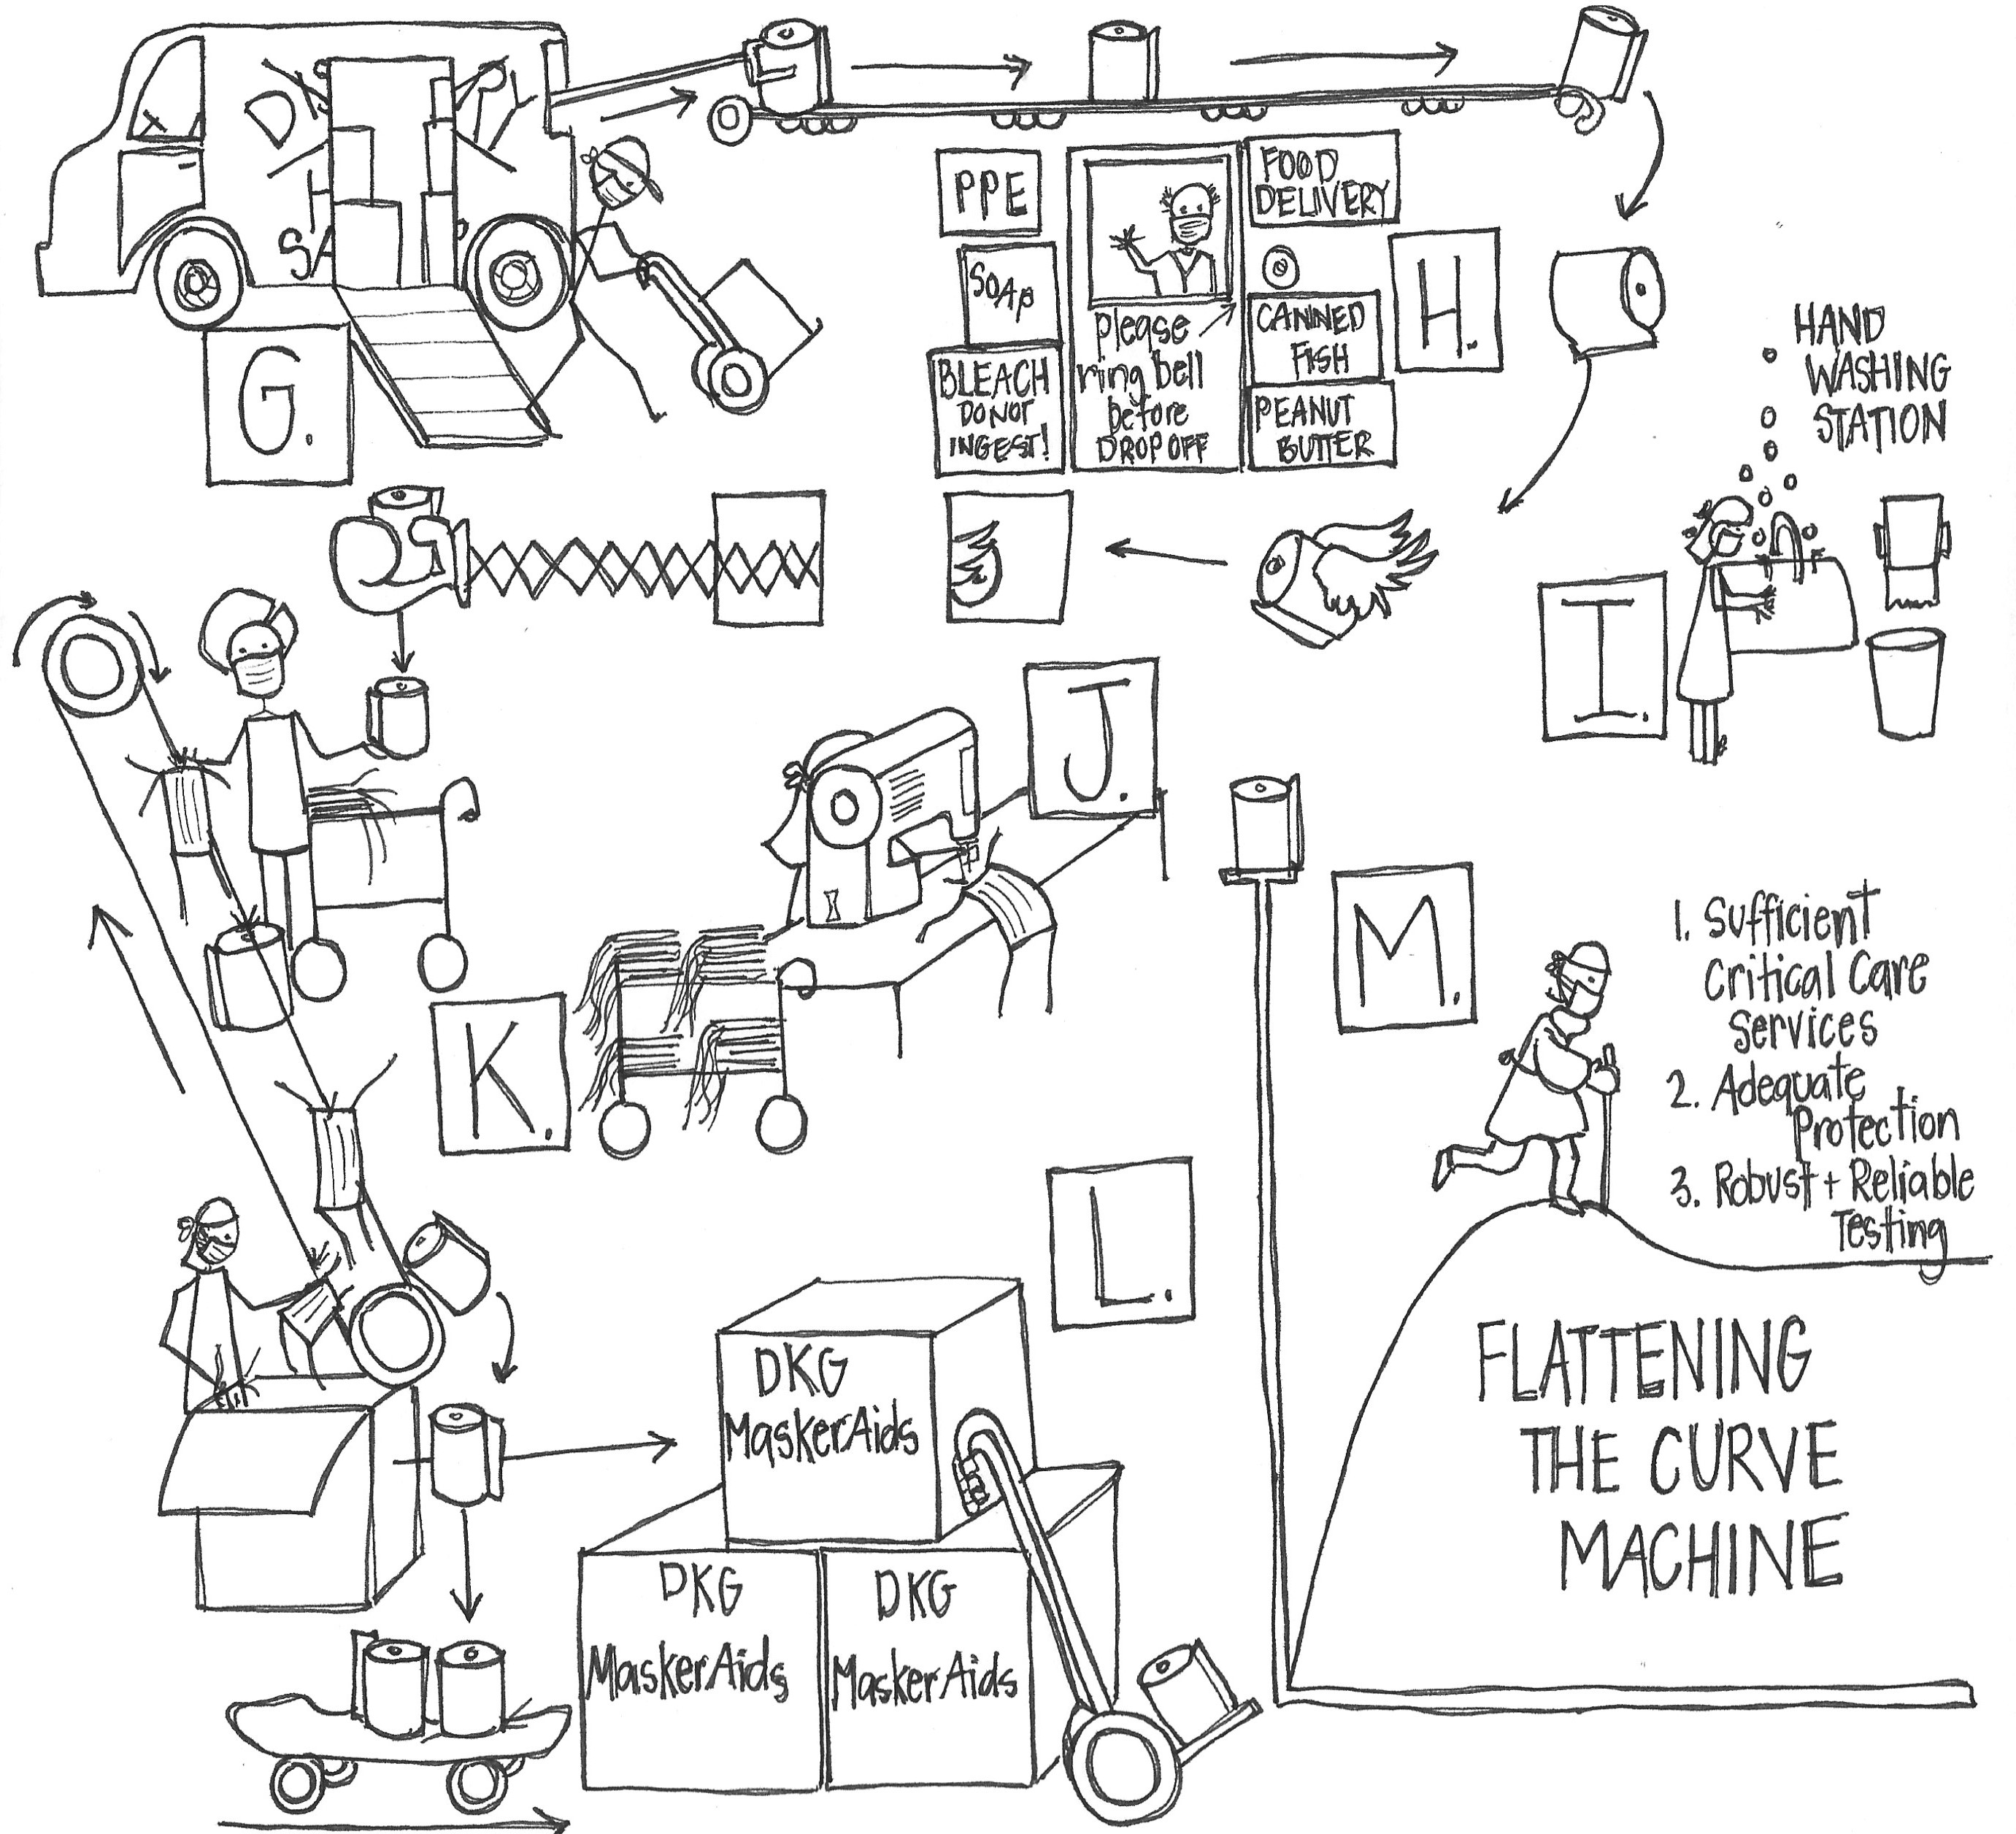 G.
PPE
SOAp
BLEACH
DO NOT
INGEST!
please
ring bell
before
DROP OFF
FOOD
DELIVERY
CANNED
FISH
PEANUT
BUTTER
H.
HAND
WASHING
STATION
I.
J.
K.
L.
DKG
MaskerAids
DKG
MaskerAids
DKG
MaskerAids
M.
1. Sufficient
Critical Care
Services
2. Adequate
Protection
3. Robust + Reliable
Testing
FLATTENING
THE CURVE
MACHINE